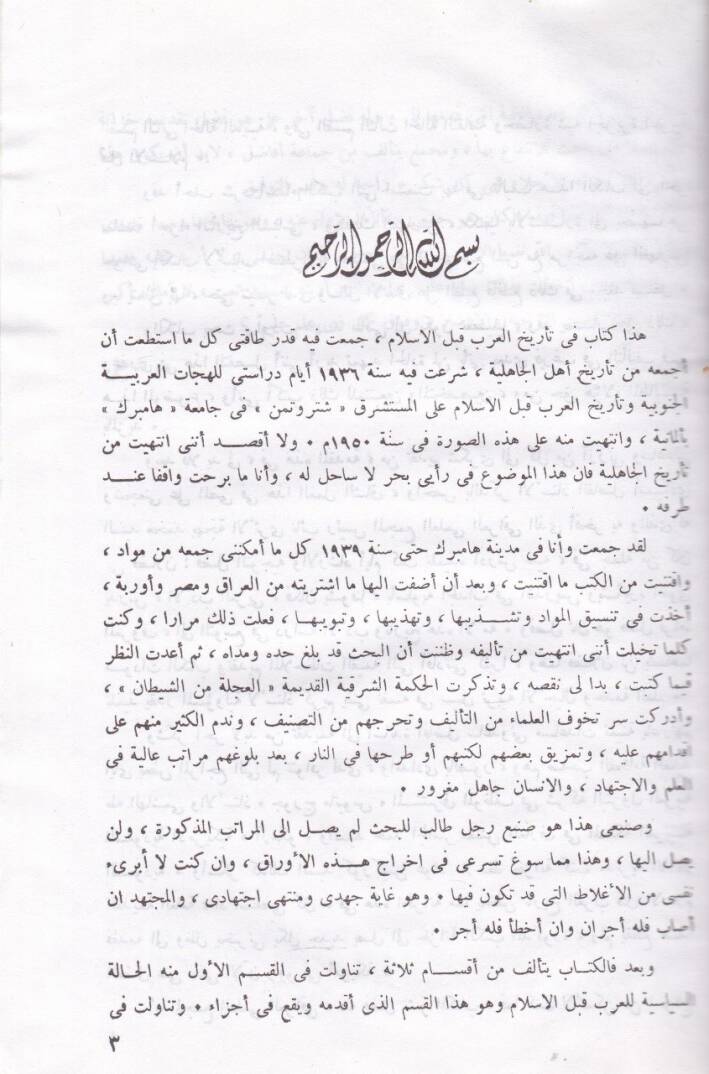 بسم الله الرحمن الرحيم
هذا كتاب فى تأريخ العرب قبل الاسلام ، جمعت فيه قدر طاقتى كل ما استطعت أن
أجمعه من تاريخ أهل الجاهلية ، شرعت فيه سنة ١٩٣٦ أيام دراستى للهجات العربية
الجنوبية وتأريخ العرب قبل الاسلام على المستشرق « شتروتمن » فى جامعة « هامبرك »
بألمانية ، وانتهيت منه على هذه الصورة فى سنة ١٩٥٠م ٠ ولا أقصد أننى انتهيت من
تأريخ الجاهلية فان هذا الموضوع فى رأيى بحر لا ساحل له ، وأنا ما برحت واقفا عند
طرفه ٠
لقد جمعت وأنا فى مدينة هامبرك حتى سنة ١٩٣٩ كل ما أمكننى جمعه من مواد ،
واقتنيت من الكتب ما اقتنيت ، وبعد أن أضفت اليها ما اشتريته من العراق ومصر وأوربة ،
أخذت فى تنسيق المواد وتشذيبها ، وتهذيبها ، وتبويبها ، فعلت ذلك مرارا ، وكنت
كلما تخيلت أننى انتهيت من تأليفه وظننت أن البحث قد بلغ حده ومداه ، ثم أعدت النظر
فيما كتبت ، بدا لى نقصه ، وتذكرت الحكمة الشرقية القديمة « العجلة من الشيطان » ،
وأدركت سر تخوف العلماء من التأليف وتحرجهم من التصنيف ، وندم الكثير منهم على
اقدامهم عليه ، وتمزيق بعضهم لكتبهم أو طرحها فى النار ، بعد بلوغهم مراتب عالية فى
العلم والاجتهاد ، والانسان جاهل مغرور ٠
وصنيعى هذا هو صنيع رجل طالب للبحث لم يصل الى المراتب المذكورة ، ولن
يصل اليها ، وهذا مما سوغ تسرعى فى اخراج هذه الأوراق ، وان كنت لا أبرىء
نفسى من الأغلاط التى قد تكون فيها ٠ وهو غاية جهدى ومنتهى اجتهادى ، والمجتهد ان
أصاب فله أجران وان أخطأ فله أجر ٠
وبعد فالكتاب يتألف من أقسام ثلاثة ، تناولت فى القسم الأول منه الحالة
السياسية للعرب قبل الاسلام وهو هذا القسم الذى أقدمه ويقع فى أجزاء ٠ وتناولت فى
٣